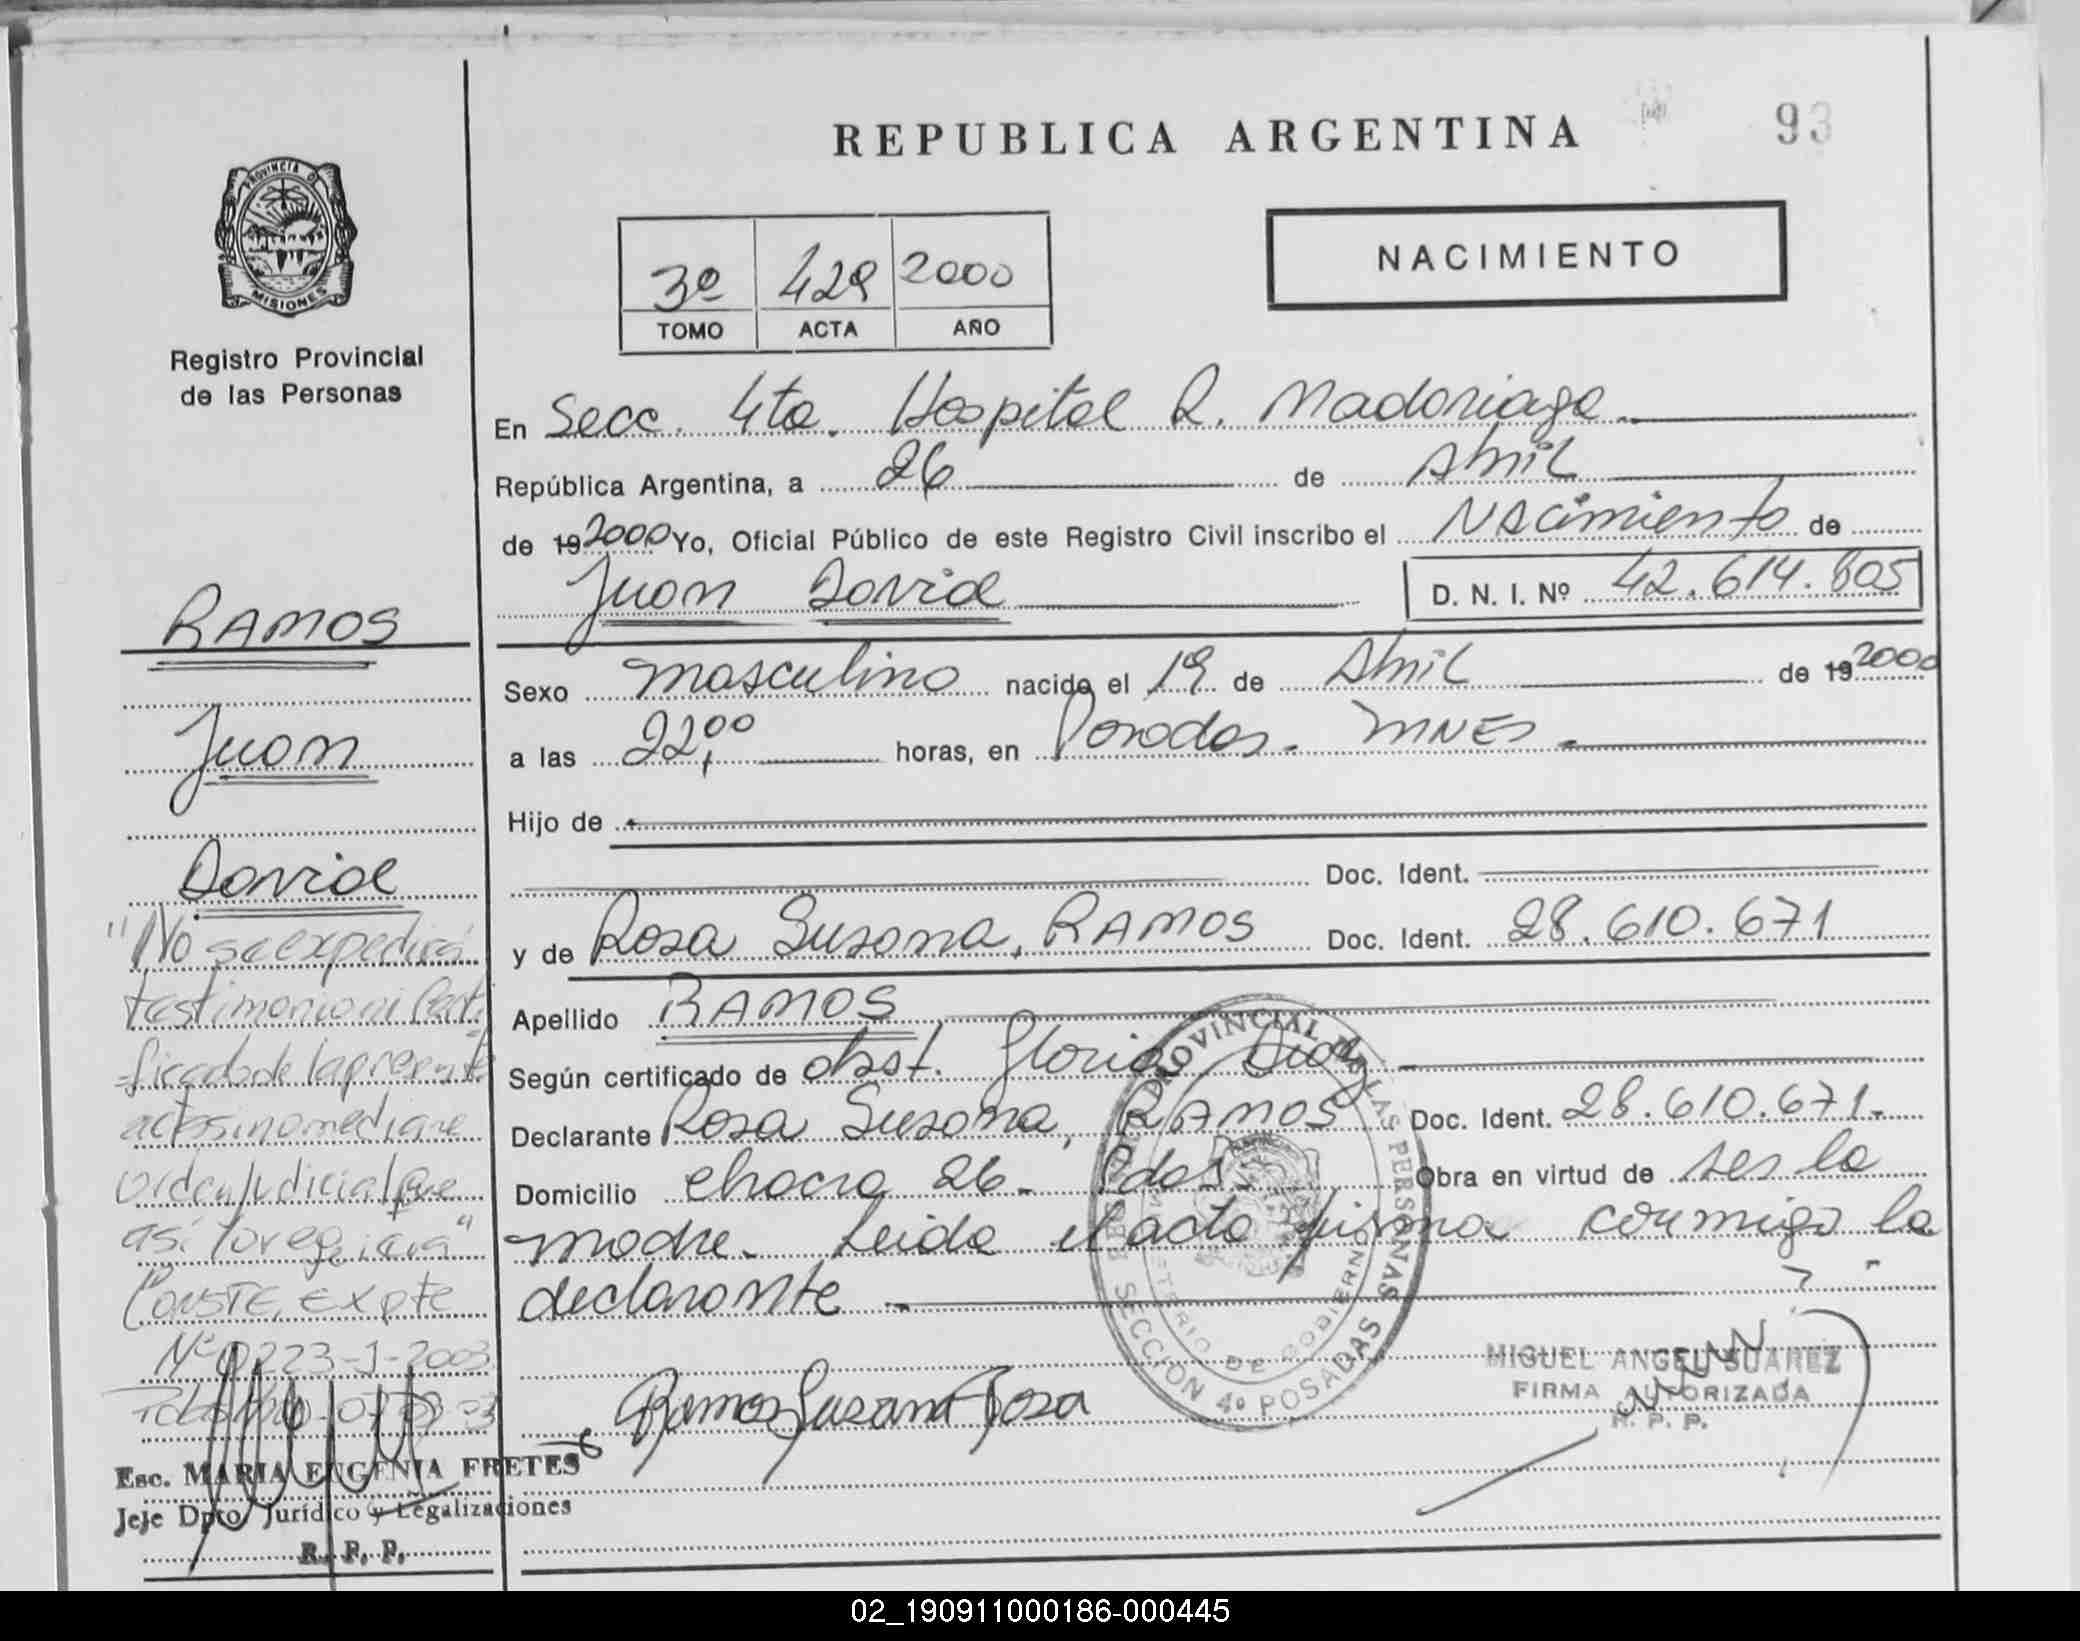 REPUBLICA ARGENTINA
93
PROVINCIA D
MISIONES
Registro Provincial
de las Personas
3º 429 2000
TOMO ACTA AÑO
NACIMIENTO
En Secc. 4ta. Hospital R. Madariaga
República Argentina, a 26 de Abril
de 19 2000 Yo, Oficial Público de este Registro Civil inscribo el Nacimiento de
Juan David D. N. I. Nº 42.614.805
Sexo masculino nacido el 19 de Abril de 19 2000
a las 22,00 horas, en Posadas. MNES
Hijo de
Doc. Ident.
y de Rosa Susana, RAMOS Doc. Ident. 28.610.671
Apellido RAMOS
Según certificado de obst. Gloria
Declarante Rosa Susana, RAMOS Doc. Ident. 28.610.671.
Domicilio chacra 26. Pdas. Obra en virtud de ser la
madre. Leida el acta firma conmigo la
declarante
Ramos Susana Rosa
PROVINCIAL DE LAS PERSONAS
MINISTERIO DE GOBIERNO
SECCION 4º POSADAS
MIGUEL ANGEL SUAREZ
FIRMA AUTORIZADA
R. P. P.
RAMOS
Juan
David
"No se expedirá
testimonio ni Certi
ficado de la presente
acta sino mediare
orden judicial que
así lo
CONSTE, Expte
Nº 0223-J-2003
Esc. MARIA EUGENIA FRETES
Jeje Dpto Jurídico y Legalizaciones
R. P. P.
02_190911000186-000445